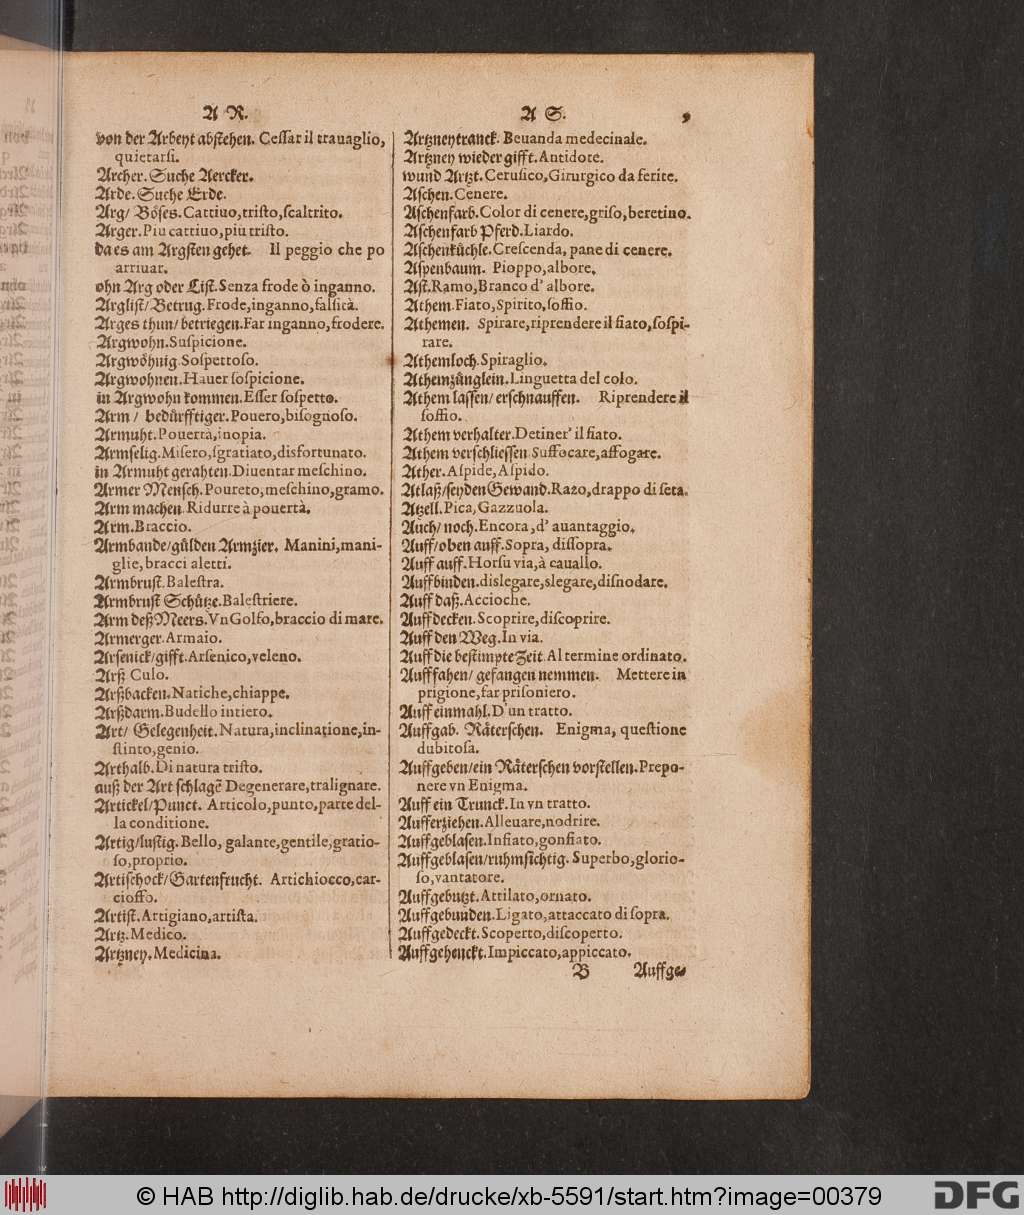 A R.
von der Arbeyt abstehen. Cessar il trauaglio,
quietarsi.
Archer. Suche Aercker.
Arde. Suche Erde.
Arg/ Böses. Cattiuo, tristo, scaltrito.
Arger. Piu cattiuo, piu tristo.
da es am Argsten gehet. Il peggio che po
arriuar.
ohn Arg oder List. Senza frode ò inganno.
Arglist/ Betrug. Frode, inganno, falsità.
Arges thun/ betriegen. Far inganno, frodere.
Argwohn. Suspicione.
Argwöhnig. Sospettoso.
Argwohnen. Hauer sospicione.
in Argwohn kommen. Esser sospetto.
Arm / bedürfftiger. Pouero, bisognoso.
Armuht. Pouertà, inopia.
Armselig. Misero, sgratiato, disfortunato.
in Armuht gerahten. Diuentar meschino.
Armer Mensch. Poureto, meschino, gramo.
Arm machen. Ridurre à pouertà.
Arm. Braccio.
Armbande/ gülden Armzier. Manini, mani-
glie, bracci aletti.
Armbrust. Balestra.
Armbrust Schütze. Balestriere.
Arm deß Meers. Vn Golfo, braccio di mare.
Armerger. Armaio.
Arsenick/gifft. Arsenico, veleno.
Arß Culo.
Arßbacken. Natiche, chiappe.
Arßdarm. Budello intiero.
Art/ Gelegenheit. Natura, inclinatione, in-
stinto, genio.
Arthalb. Di natura tristo.
auß der Art schlagẽ Degenerare, tralignare.
Artickel/ Punct. Articolo, punto, parte del-
la conditione.
Artig/lustig. Bello, galante, gentile, gratio-
so, proprio.
Artischock/ Gartenfrucht. Artichiocco, car-
cioffo.
Artist. Artigiano, artista.
Artz. Medico.
Artzney. Medicina.
A S. 9
Artzneytranck. Beuanda medecinale.
Artzney wieder gifft. Antidote.
wund Artzt. Cerusico, Girurgico da ferite.
Aschen. Cenere.
Aschenfarb. Color di cenere, griso, beretino.
Aschenfarb Pferd. Liardo.
Aschenküchle. Crescenda, pane di cenere.
Aspenbaum. Pioppo, albore.
Ast. Ramo, Branco d' albore.
Athem. Fiato, Spirito, soffio.
Athemen. Spirare, riprendere il fiato, sospi-
rare.
Athemloch. Spiraglio.
Athemzünglein. Linguetta del colo.
Athem lassen/ erschnauffen. Riprendere il
soffio.
Athem verhalter. Detiner' il fiato.
Athem verschliessen Suffocare, affogare.
Ather. Aspide, Aspido.
Atlaß/seyden Gewand. Razo, drappo di seta.
Atzell. Pica, Gazzuola.
Auch/ noch. Encora, d' auantaggio.
Auff/oben auff. Sopra, dissopra.
Auff auff. Horsu via, à cauallo.
Auffbinden. dislegare, slegare, disnodare.
Auff daß. Accioche.
Auffdecken. Scoprire, discoprire.
Auff den Weg. In via.
Auff die bestimpte Zeit Al termine ordinato.
Aufffahen/ gefangen nemmen. Mettere in
prigione, far prisoniero.
Auff einmahl. D'un tratto.
Auffgab. Räterschen. Enigma, questione
dubitosa.
Auffgeben/ein Räterschen vorstellen. Prepo-
nere vn Enigma.
Auff ein Trunck. In vn tratto.
Aufferziehen. Alleuare, nodrire.
Auffgeblasen. Infiato, gonfiato.
Auffgeblasen/ruhmsichtig. Superbo, glorio-
so, vantatore.
Auffgebutzt. Attilato, ornato.
Auffgebunden. Ligato, attaccato di sopra.
Auffgedeckt. Scoperto, discoperto.
Auffgehenckt. Impiccato, appiccato.
B Auffge-
© HAB http://diglib.hab.de/drucke/xb-5591/start.htm?image=00379
DFG